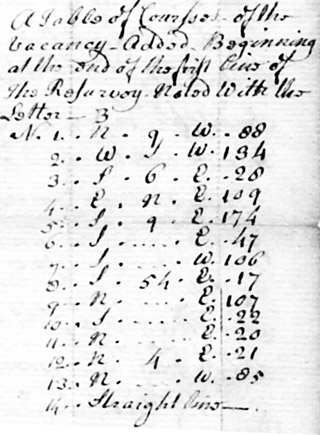 A Table of Courses of the
Vacancy Added Beginning
at the end of the first line of
the Resurvey Noted With the
Letter B
N. 1. N. 9 W. 88
2. W. S W. 134
3. S 6 E. 28
4. E. N. E. 109
5. S. 9 E. 174
6. S. .... E. 47
7. S. .... W. 106
8. S. 54 E. 17
9. N. .... E. 107
10. S. .... E. 22
11. N. .... E. 20
12. N. 4. E. 21
13. N. .... W. 85
14. Straight line